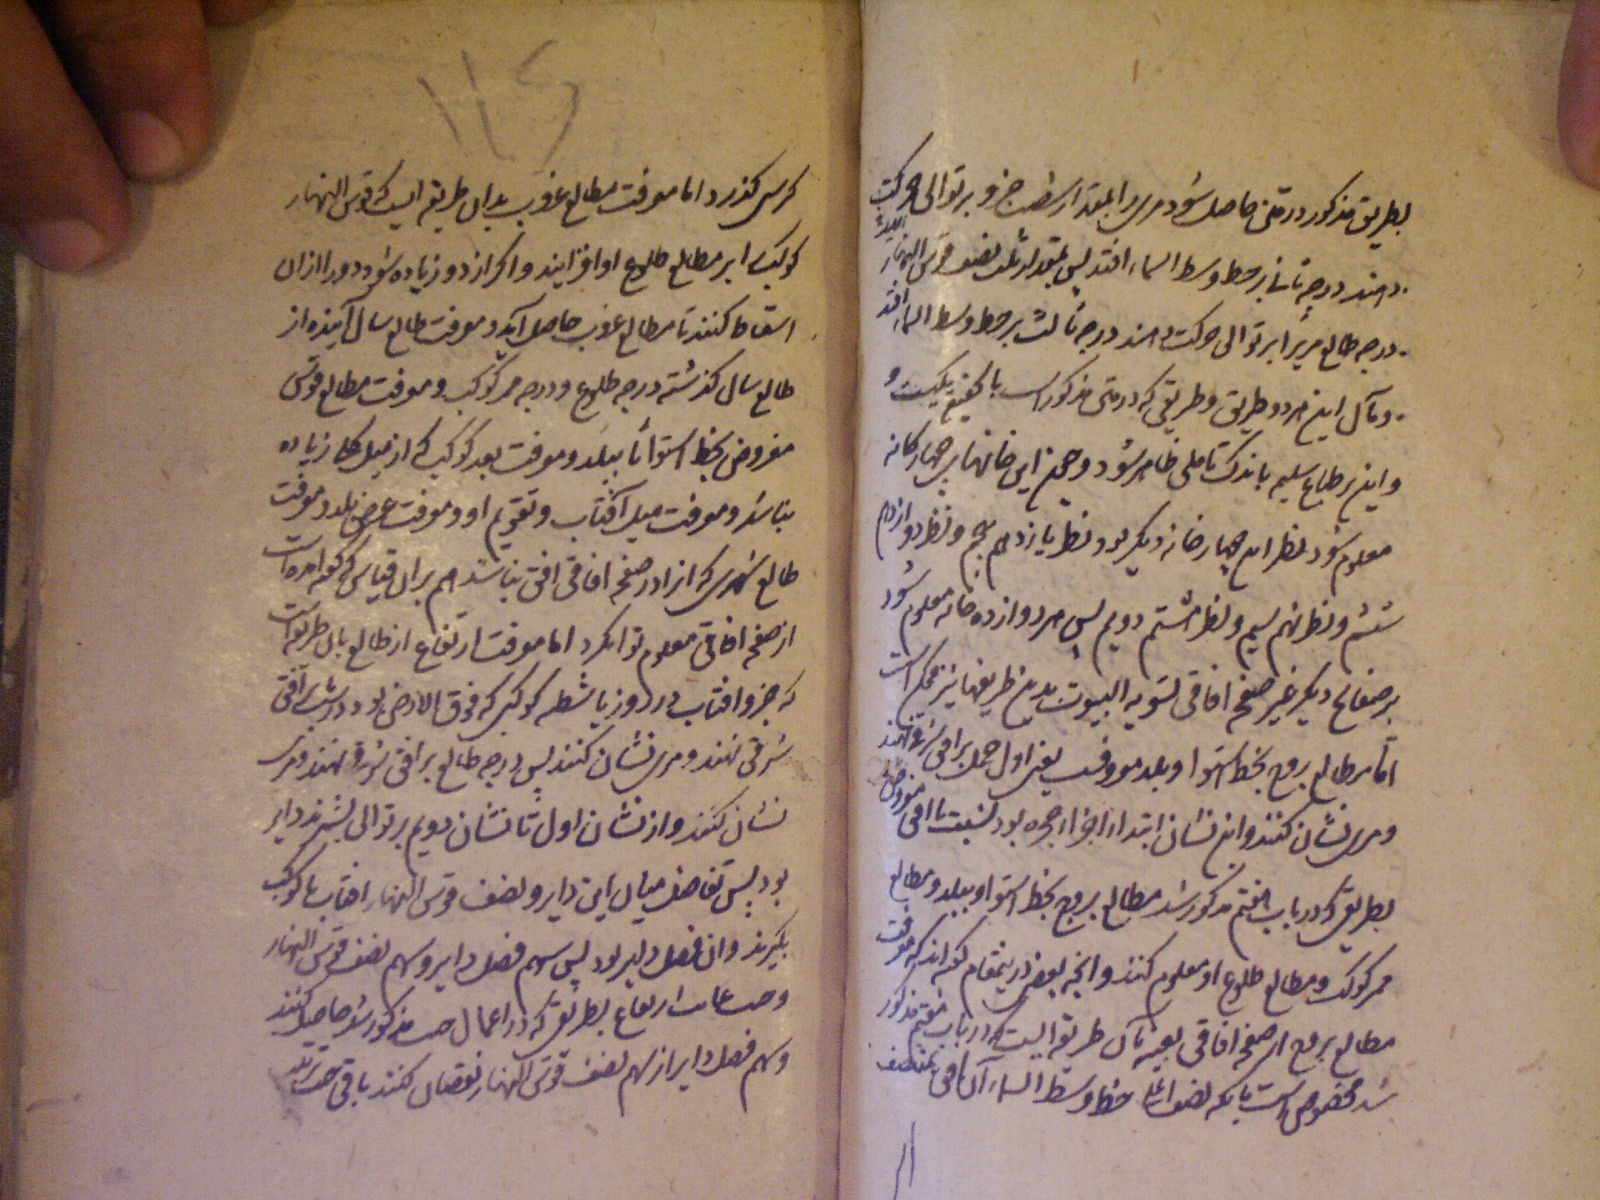 بطریق مذکور در متن حاصل شود مری را بمقدار شصت جزو بر توالی حرکت
دهند درجه تاسع بر خط وسط السماء افتد پس بمقدار ثلث نصف قوس النهار
درجه طالع مری را بر توالی حرکت دهند درجه ثالث بر خط وسط السماء افتد
و مآل این هر دو طریق و طریقی که در متن مذکور است یکیست و
و این بر طباع سلیم باندک تاملی ظاهر شود و چون این خانها بر چهارگانه
معلوم شود نظر این چهار خانه دیگر بود نظیر یازدهم پنجم و نظیر دوازدهم
ششم و نظیر نهم سیم و نظیر هشتم دویم پس هر دوازده خانه معلوم شود
بر صفایح دیگر غیر صفحه افاقی تسویه البیوت بدین طریقها نیز ممکن است
اما مطالع بروج بخط استوا و بلد معروفست یعنی اول حمل بر افق شرقی نهند
و مری نشان کنند و این نشان ابتداء اجزاء حجره بود نسبت با افق مفروض
بطریقی که در باب هفتم مذکور شد مطالع بروج بخط استوا و ببلد و مطالع
ممر کوکب و مطالع طلوع او معلوم کنند و انچه بعضی درینمقام گفته اند که معرفت
مطالع بروج از صفحه افاقی بعینه بآن طریقه الیست که در باب هفتم مذکور
شد مخصوص است بآنکه نصف اعلاء خط وسط السماء آن افق بمنتصف
۱۱۲
کرسی گذرد اما معرفت مطالع غروب بدان طریقه الیست که قوس النهار
کوکب را بر مطالع طلوع او افزایند و اگر از دور زیاده شود دور را ازان
اسقاط کنند تا مطالع غروب حاصل آید و معرفت طالع سال آینده از
طالع سال گذشته و درجه طلوع و درجه ممر کوکب و معرفت مطالع قوس
مفروض بخط استوا یا ببلد و معرفت بعد کوکب که از میل کلی زیاده
نباشد و معرفت میل آفتاب و تقویم او و معرفت عرض بلد و معرفت
طالع شهری که انرا در صفحه افاقی افق نباشد هم بران قیاس که گفته آمده است
از صفحه افاقی معلوم توان کرد اما معرفت ارتفاع از طالع بآن طریق است
که جزو افتاب در روز یا شظیه کوکبی که فوق الارض بود در شب بر افق
شرقی نهند و مری نشان کنند پس درجه طالع بر افق شرقی نهند و مری
نشان کنند و از نشان اول تا نشان دویم بر توالی بشمرند دایر
بود پس تفاضل میان این دایر و نصف قوس النهار افتاب یا کوکب
بگیرند و ان فضل دایر بود پس سهم فضل دایر و سهم نصف قوس النهار
و جیب غایت ارتفاع بطریقی که در اعمال جیب مذکور شد حاصل کنند
و سهم فضل دایر از سهم نصف قوس النهار نقصان کنند باقی جیب ترتیب